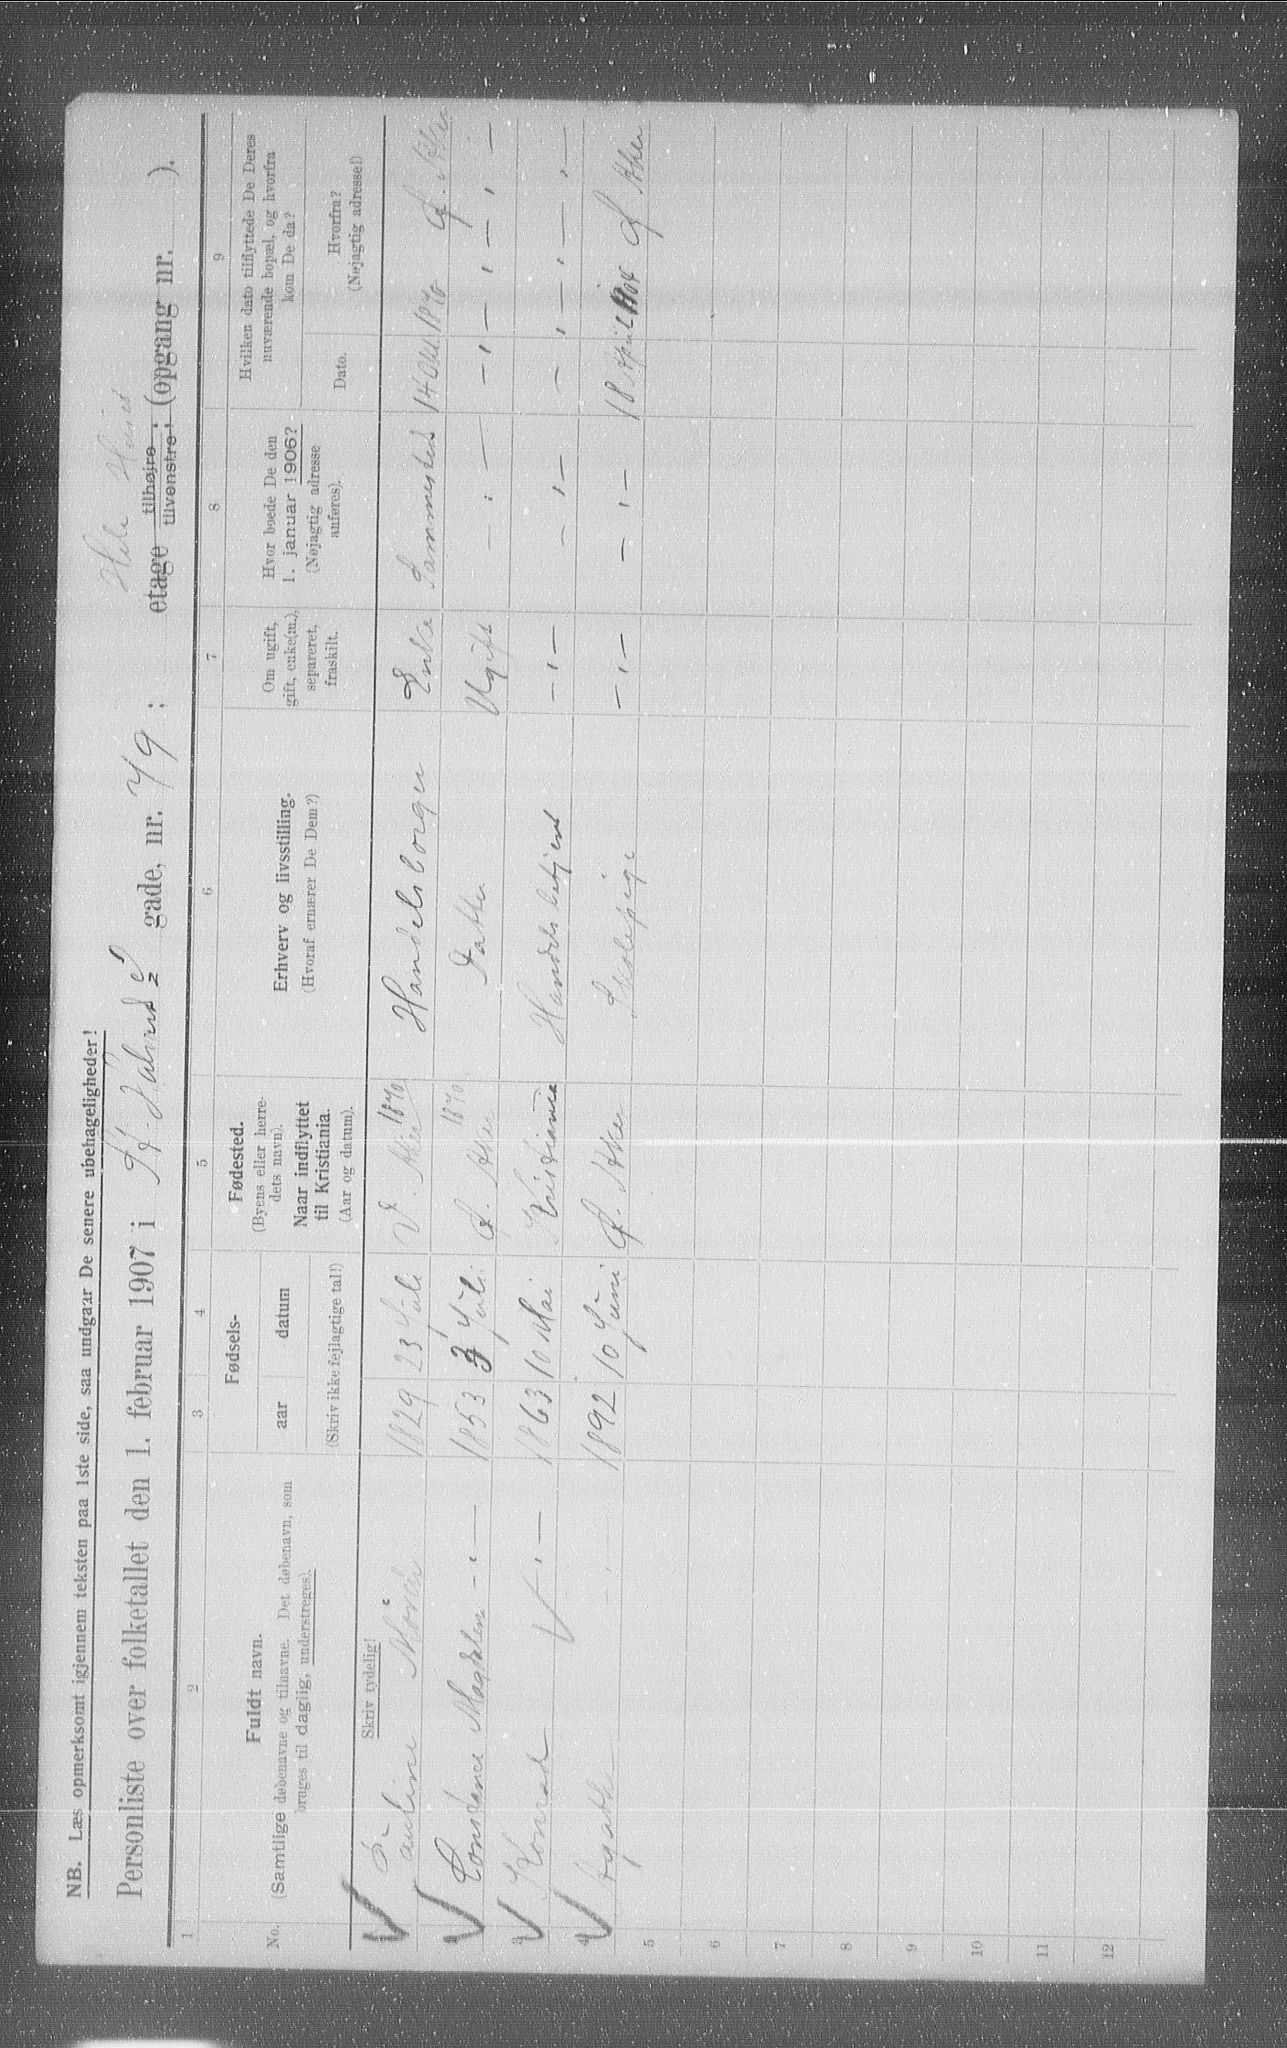 NB. Læs opmerksomt igjennem teksten paa 1ste side, saa undgaar De senere ubehageligheder!
Hele Huset
Personliste over folketallet den 1. februar 1907 i gade, nr. 79; etage tilhøjre; tilvenstre; (opgang nr. ).
1 2 3 4 5 6 7 8 9
No.
Fuldt navn.
(Samtlige døbenavne og tilnavne. Det døbenavn, som
bruges til daglig, understreges).
Skriv tydelig!
Fødsels-
aar datum
(Skriv ikke fejlagtige tal!)
Fødested.
(Byens eller herre-
dets navn).
Naar indflyttet
til Kristiania.
(Aar og datum).
Erhverv og livsstilling.
(Hvoraf ernærer De Dem?)
Om ugift,
gift, enke(m.),
separeret,
fraskilt.
Hvor boede De den
1. januar 1906?
(Nøjagtig adresse
anføres).
Hvilken dato tilflyttede De Deres
nuværende bopæl, og hvorfra
kom De da?
Dato.
Hvorfra?
(Nøjagtig adresse!)
1 Pauline 1829 23 Juli V. Aker 1870 Handelsborger Enke Sammesteds 14 Okt 1870 Aker
2 Constance Magdalene -"- 1853 3 Juli Ø. Aker 1870 Datter Ugift -"- -"- -"- -"-
3 Konrad -"- 1863 10 Mai Kristiania Handelsbetjent -"- -"- -"- -"- -"-
4 Agathe -"- 1892 10 Juni Ø. Aker Skolepige -"- -"- 18 April 1904 Aker
5
6
7
8
9
10
11
12